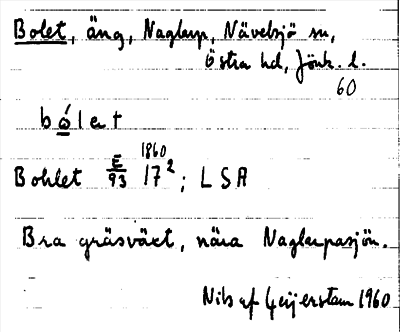 Bolet, äng, Naglarp, Nävelsjö sn,
Östra hd, Jönk. l.
60
bólet
1860
Bohlet E/93 17²; LSA
Bra gräsväxt, nära Naglarpasjön.
Nils af Geijerstam 1960